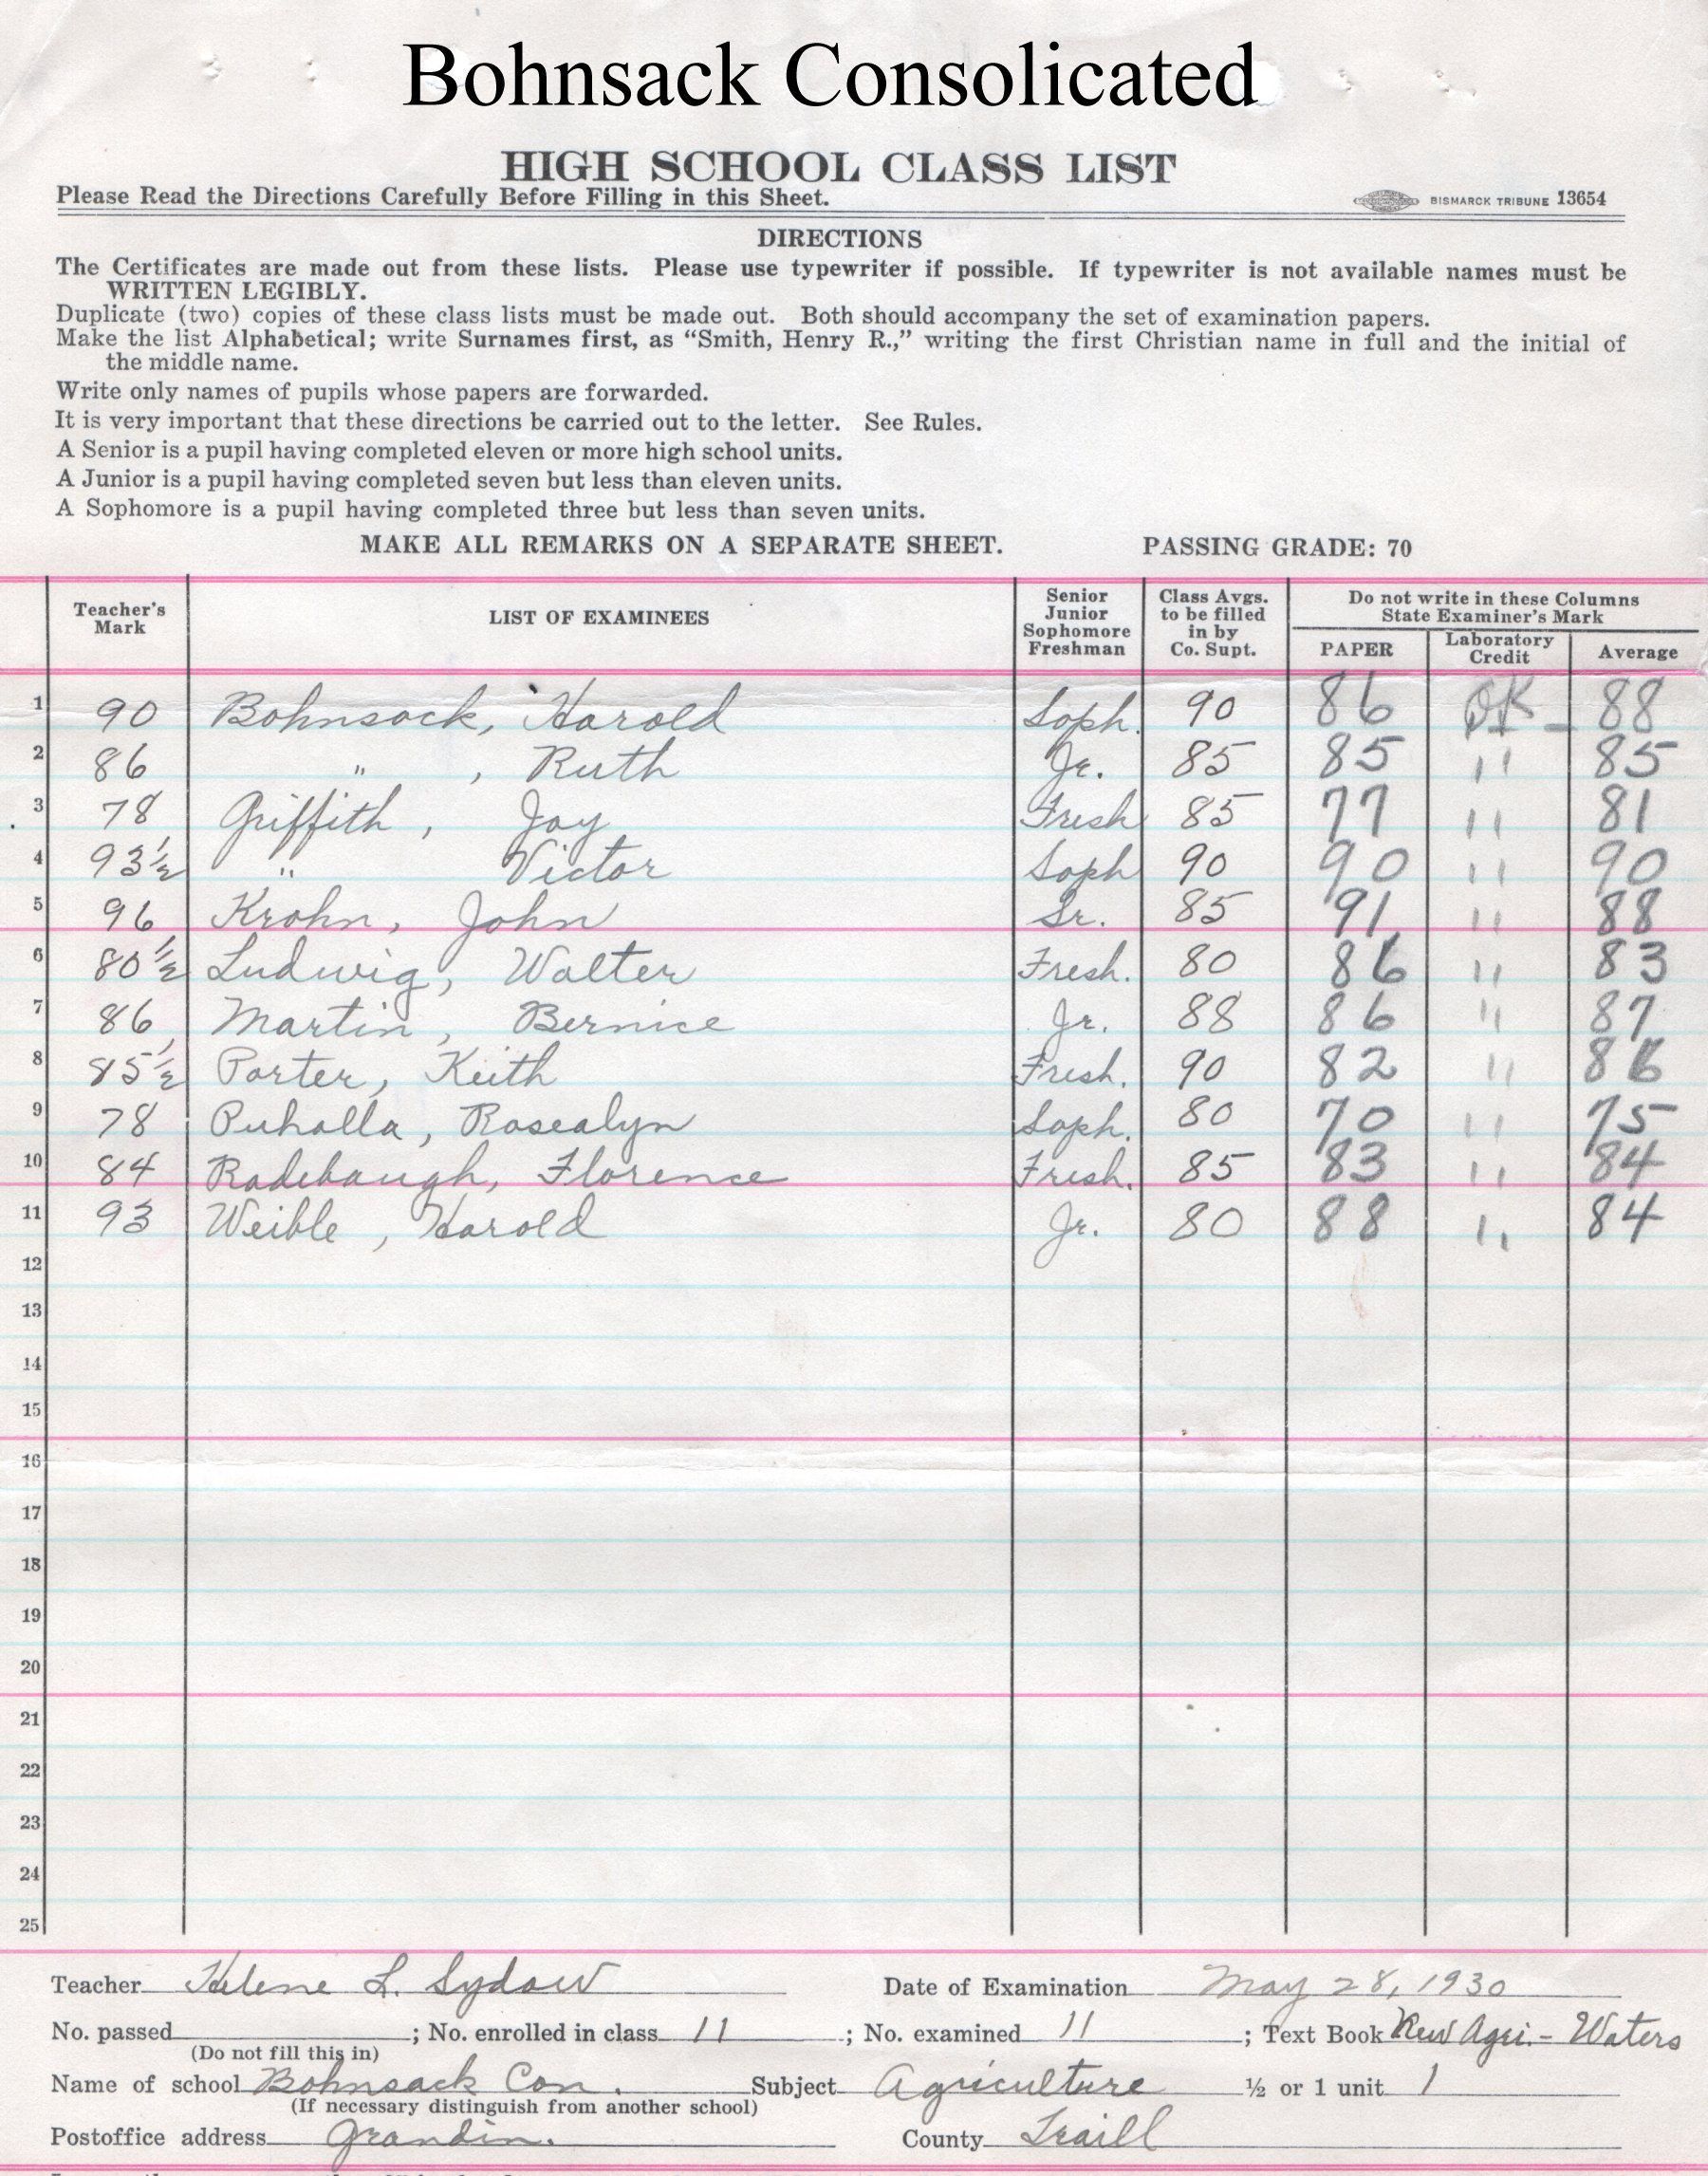 Bohnsack Consolicated
HIGH SCHOOL CLASS LIST
Please Read the Directions Carefully Before Filling in this Sheet. BISMARCK TRIBUNE 13654
DIRECTIONS
The Certificates are made out from these lists. Please use typewriter if possible. If typewriter is not available names must be
WRITTEN LEGIBLY.
Duplicate (two) copies of these class lists must be made out. Both should accompany the set of examination papers.
Make the list Alphabetical; write Surnames first, as “Smith, Henry R.,” writing the first Christian name in full and the initial of
the middle name.
Write only names of pupils whose papers are forwarded.
It is very important that these directions be carried out to the letter. See Rules.
A Senior is a pupil having completed eleven or more high school units.
A Junior is a pupil having completed seven but less than eleven units.
A Sophomore is a pupil having completed three but less than seven units.
MAKE ALL REMARKS ON A SEPARATE SHEET. PASSING GRADE: 70
Teacher's Mark LIST OF EXAMINEES Senior Junior Sophomore Freshman Class Avgs. to be filled in by Co. Supt. Do not write in these Columns State Examiner's Mark PAPER Laboratory Credit Average
1 90 Bohnsack, Harold Soph. 90 86 OK 88
2 86 " , Ruth Jr. 85 85 " 85
3 78 Griffith, Joy Fresh 85 77 " 81
4 93½ " Victor Soph 90 90 " 90
5 96 Krohn, John Sr. 85 91 " 88
6 80½ Ludwig, Walter Fresh. 80 86 " 83
7 86 Martin, Bernice Jr. 88 86 " 87
8 85½ Porter, Keith Fresh. 90 82 " 86
9 78 Puhalla, Rosealyn Soph. 80 70 " 75
10 84 Radebaugh, Florence Fresh. 85 83 " 84
11 93 Weible, Harold Jr. 80 88 " 84
12
13
14
15
16
17
18
19
20
21
22
23
24
25
Teacher Helene L. Sydow Date of Examination May 28, 1930
No. passed ; No. enrolled in class 11 ; No. examined 11 ; Text Book New Agri. - Waters
(Do not fill this in)
Name of school Bohnsack Con. Subject Agriculture ½ or 1 unit 1
(If necessary distinguish from another school)
Postoffice address Grandin. County Traill